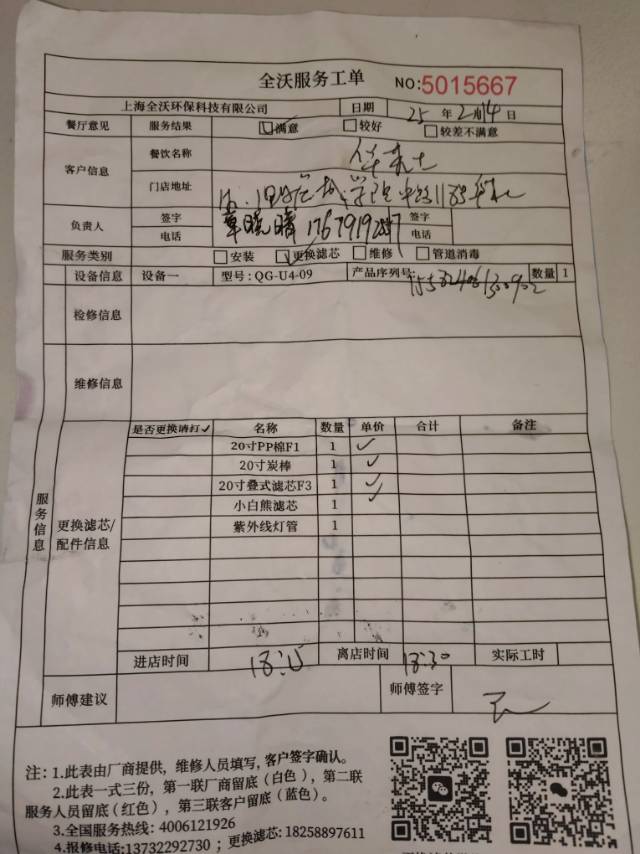 全沃服务工单 NO:5015667
上海全沃环保科技有限公司 日期 25 年 2 月 14 日
餐厅意见 服务结果 满意 较好 较差不满意
客户信息 餐饮名称 华莱士
门店地址
负责人 签字 章晓晴 签字
电话 电话
服务类别 安装 更换滤芯 维修 管道消毒
设备信息 设备一 型号: QG-U4-09 产品序列号: 数量 1
检修信息
维修信息
服务信息
更换滤芯/配件信息
是否更换请打✓ 名称 数量 单价 合计 备注
20寸PP棉F1 1 ✓
20寸炭棒 1 ✓
20寸叠式滤芯F3 1 ✓
小白熊滤芯 1 ✓
紫外线灯管 1
进店时间 18:15 离店时间 18:30 实际工时
师傅建议 师傅签字
注：1.此表由厂商提供，维修人员填写，客户签字确认。
2.此表一式三份，第一联厂商留底（白色），第二联
服务人员留底（红色），第三联客户留底（蓝色）。
3.全国服务热线：4006121926
4.报修电话:13732292730；更换滤芯: 18258897611